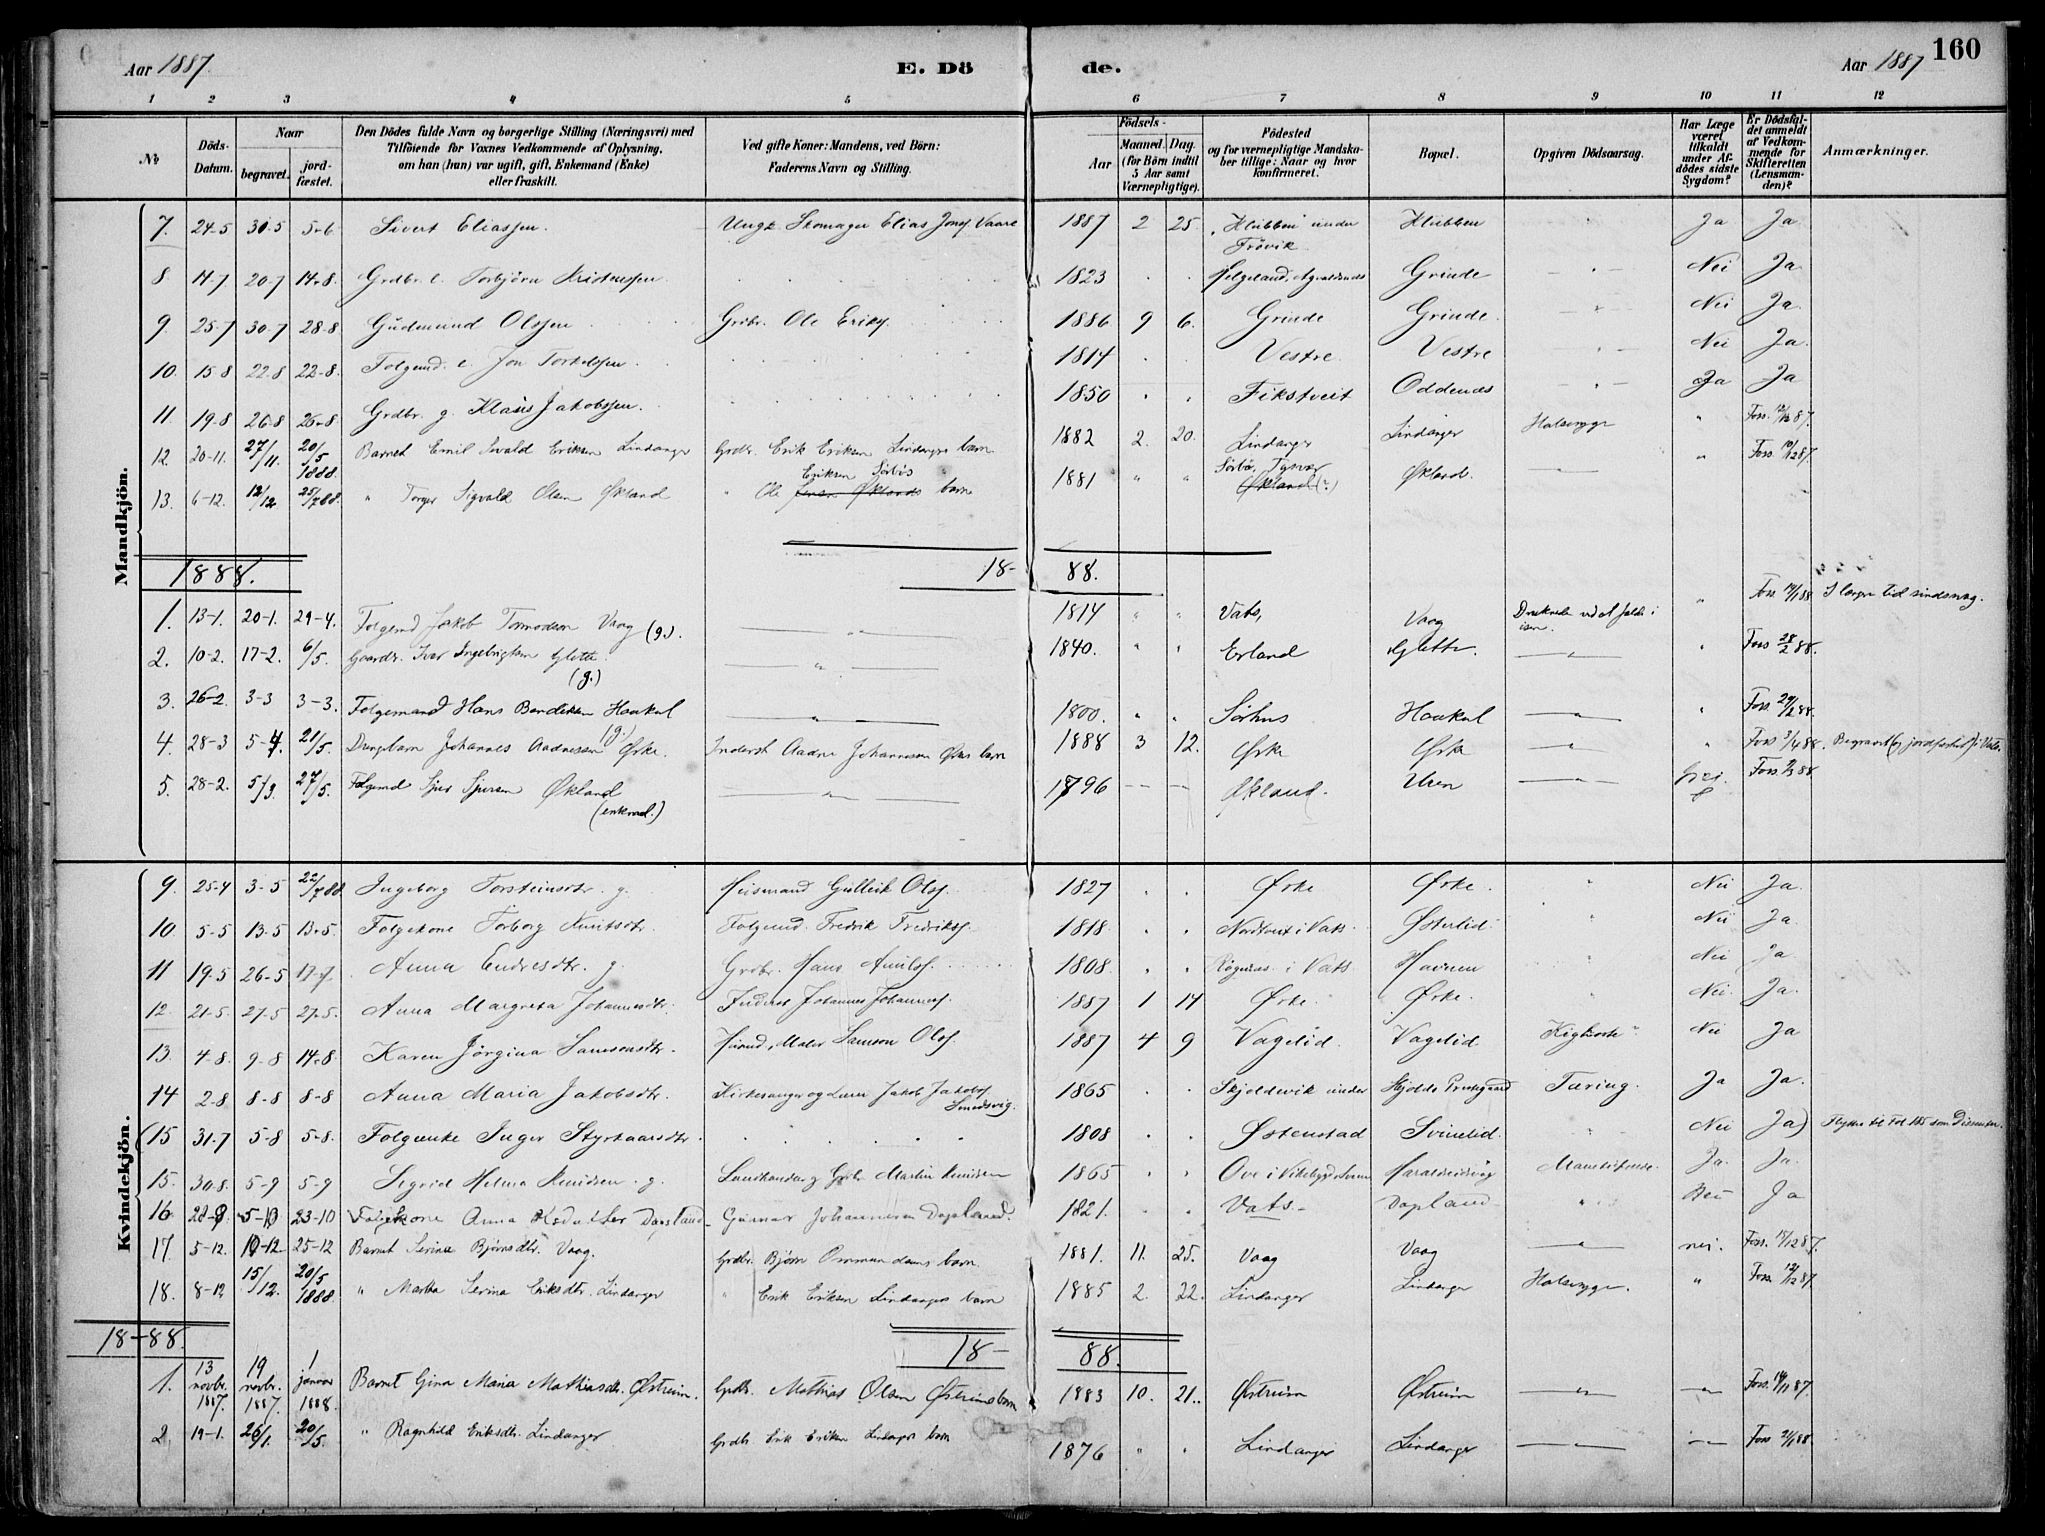 Aar 1887
E. Dö
de.
Aar 1887
160
1 2 3 4 5 6 7 8 9 10 11 12
No
Döds-Datum.
Naar
begravet.
jord-fæstet.
Den Dödes fulde Navn og borgerlige Stilling (Næringsvei) med
Tilföiende for Voxnes Vedkommende af Oplysning,
om han (hun) var ugift, gift, Enkemand (Enke)
eller fraskilt.
Ved gifte Koner: Mandens, ved Börn:
Faderens Navn og Stilling.
Födsels-
Aar
Maaned. Dag.
(for Börn indtil
5 Aar samt
Værnepligtige).
Födested
og for værnepligtige Mandska-
ber tillige: Naar og hvor
konfirmeret.
Bopæl.
Opgiven Dödsaarsag.
Har Læge
været
tilkaldt
under Af-
dödes sidste
Sygdom?
Er Dödsfal-
det anmeldt
af Vedkom-
mende for
Skifteretten
(Lensman-
den)?
Anmærkninger.
Mandkjön.
7. 24-5 30-5 5-6 Sivert Eliassen. Ungk. Skomager Elias Jons. Vaare 1887 2 25 Klubben under Frøvik Klubben Ja Ja
8 14-7 20-7 14-8 Grdbr. e. Torbjørn Kristensen 1823 Helgeland, Grinde Nei Ja
9. 25-7 30-7 28-8 Gudmund Olssen Grdbr. Ole Eriks. 1886 9 6. Grinde Grinde Nei Ja.
10. 15-8 22-8 22-8. Folgemd. e. Jon Torkelssen 1814 Vestre Vestre Nei Ja.
11. 19-8 26-8 26-8. Grdbr. g. Klaus Jakobssen. 1850 Fikstveit Oddenes Ja Ja
12. 20-11. 27/11. 20/5 1888. Barnet Emil Sevald Eriksen Lindanger Grdbr. Erik Eriksen Lindangers barn 1882 2. 20. Lindanger Lindanger Halsesyge " Foss. 12/12 87.
13. 6-12. 12/12 25/7 88. " Torger Sigvald Olsen Økland " Ole Eriksen Sørbøs barn 1881 " " Sørbø, Tysvær Økland (?) Økland. " Foss. 10/12 87.
1888. 18- 88.
1. 13-1. 20-1. 29-4. Folgemd Jakob Tormodsen Vaag (g.). 1814 " " Vats, Vaag Druknede ved at falde i isen. " Foss 14/1 88 I længre tid sindssvag.
2. 10-2. 17-2. 6/5. Gaardbr. Iver Ingebrigtsen Glette. (g.) 1840. " " Erland Glette. " Foss 28/2 88.
3. 26-2. 3-3 3-3. Folgemand Hans Bendiksen Haakul (g. 1800. " " Sørhus Haakul " Foss 29/2 88.
4. 28-3 5-4. 21/5. Drengbarn Johannes Aadnesen Ørke. Inderst Aadne Johannesen Ørkes barn 1888 3 12. Ørke Ørke " Foss 3/4 88. Begravet (og jordfæstet) i Vats.
5. 28-2. 5/3. 27/5. Folgemd Sjur Sjursen Økland (enkemd.) 1796 Økland. Uren Nei. Foss 2/3 88
Kvindekjön.
9. 25-4 3-5 22/7 88 Ingeborg Torsteinsdtr. g. Huismand Gullik Ols. 1827 Ørke Ørke. Nei Ja.
10. 5-5 13-5 13-5. Folgekone Torborg Knutsdtr. Folgemd. Fredrik Fredriks. 1818 Nordtveit i Vats. Østerlid Nei Ja
11 19-5 26-5 17-7. Anna Endresdtr. g. Grdbr. Hans Amds. 1808 i Vats Havnen Nei Ja
12. 21-5. 27-5 27-5. Anna Margreta Johannesdtr. Inderst Johannes Johanness. 1887 1 14 Ørke Ørke. Nei Ja.
13. 4-8. 9-8 14-8 Karen Jørgina Samsonsdtr. Husmd. Maler Samson Ols. 1887 4 9 Vagelid. Vagelid Kighoste Nei Ja
14 2-8 8-8 8-8 Anna Maria Jakobsdtr. Kirkesanger og Lærer Jakob Jakobs. Smedsvig. 1865 Skjoldevik under Skjolds Prestegaard Tæring. Ja Ja.
(15 31-7 5-8 5-8. Folgenke Inger Styrkaarsdtr. 1808 Østenstad Svinelid. Nei Ja) Flyttes til Fol. 185 som Dissenter.
15. 30-8. 5-9 5-9 Sigrid Helena Knudsen. g. Landhandler, Grdbr. Martin Knudsen 1865 Ove i Vikebygd Haraldseidvåg Ja. Ja.
16 28-9 5-10 23-10 Folgekone Anna Dapsland Gunnar Johannesen Dapsland. 1821. Vats. Dapsland Nei Ja
17. 5-12. 10-12 25-12 Barnet Serina Bjørnsdtr. Vaag. Grdbr. Bjørn Ommundsens barn 1881. 11. 25. Vaag Vaag nei. Foss. 12/12 87.
18. 8-12 15/12. 20/5 1888. " Marta Serina Eriksdtr. Lindanger " Erik Eriksen Lindangers barn 1885 2. 22. Lindanger Lindanger Halsesyge. " Foss 12/12 87.
18-88. 18- 88.
1. 13 novbr. 1887. 19 novbr. 1887. 1 januar 1888. Barnet Gina Maria Mathiasdtr. Østreim. Grdbr. Mathias Olsen Østreims barn 1883 10. 21. Østreim Østreim Foss. 14/11 87.
2 19-1. 26/1. 20/5. " Ragnhild Eriksdtr. Lindanger Grdbr Erik Eriksen Lindangers barn 1876 " " Lindanger Lindanger Foss 21/1 88.